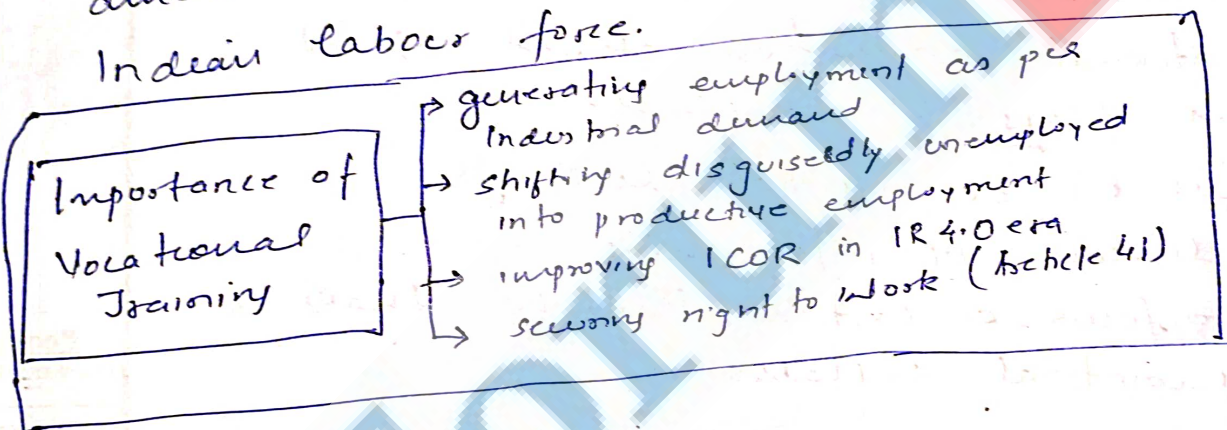 Indian labour force.
Importance of
Vocational
Training
→ generating employment as per
Industrial demand
→ shifting disguisedly unemployed
into productive employment
→ improving ICOR in IR 4.0 era
→ securing right to work (Article 41)
orum